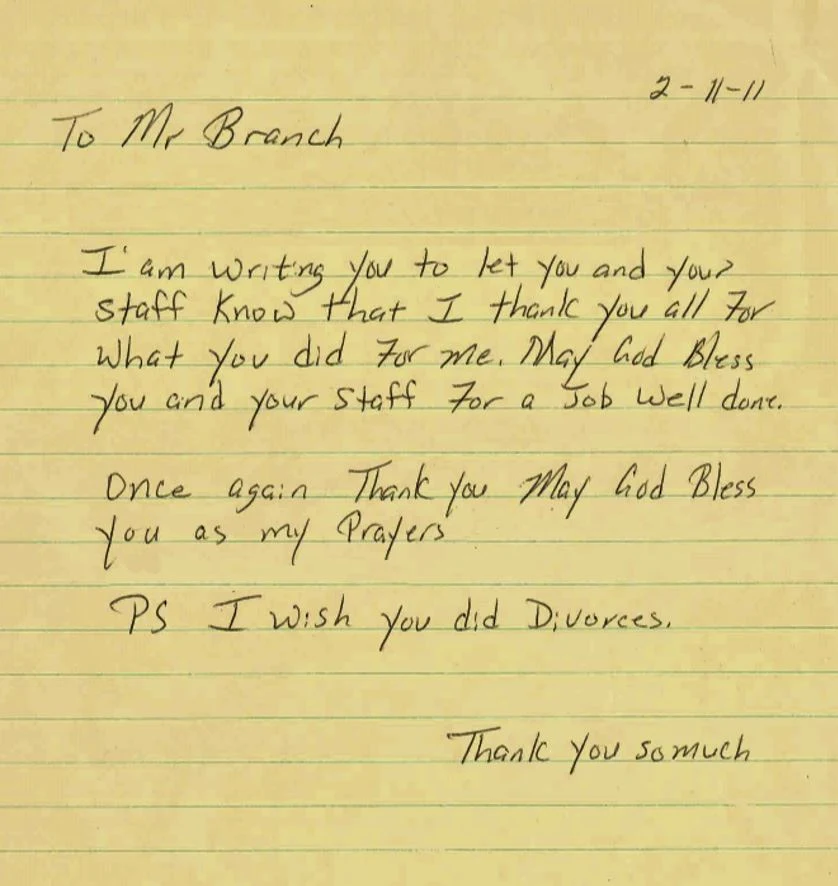 2-11-11
To Mr Branch
I'am writing you to let you and your
staff Know that I thank you all For
what you did For me. May God Bless
you and your staff For a Job Well done.
Once again Thank you May God Bless
you as my Prayers
PS I wish you did Divorces.
Thank you so much